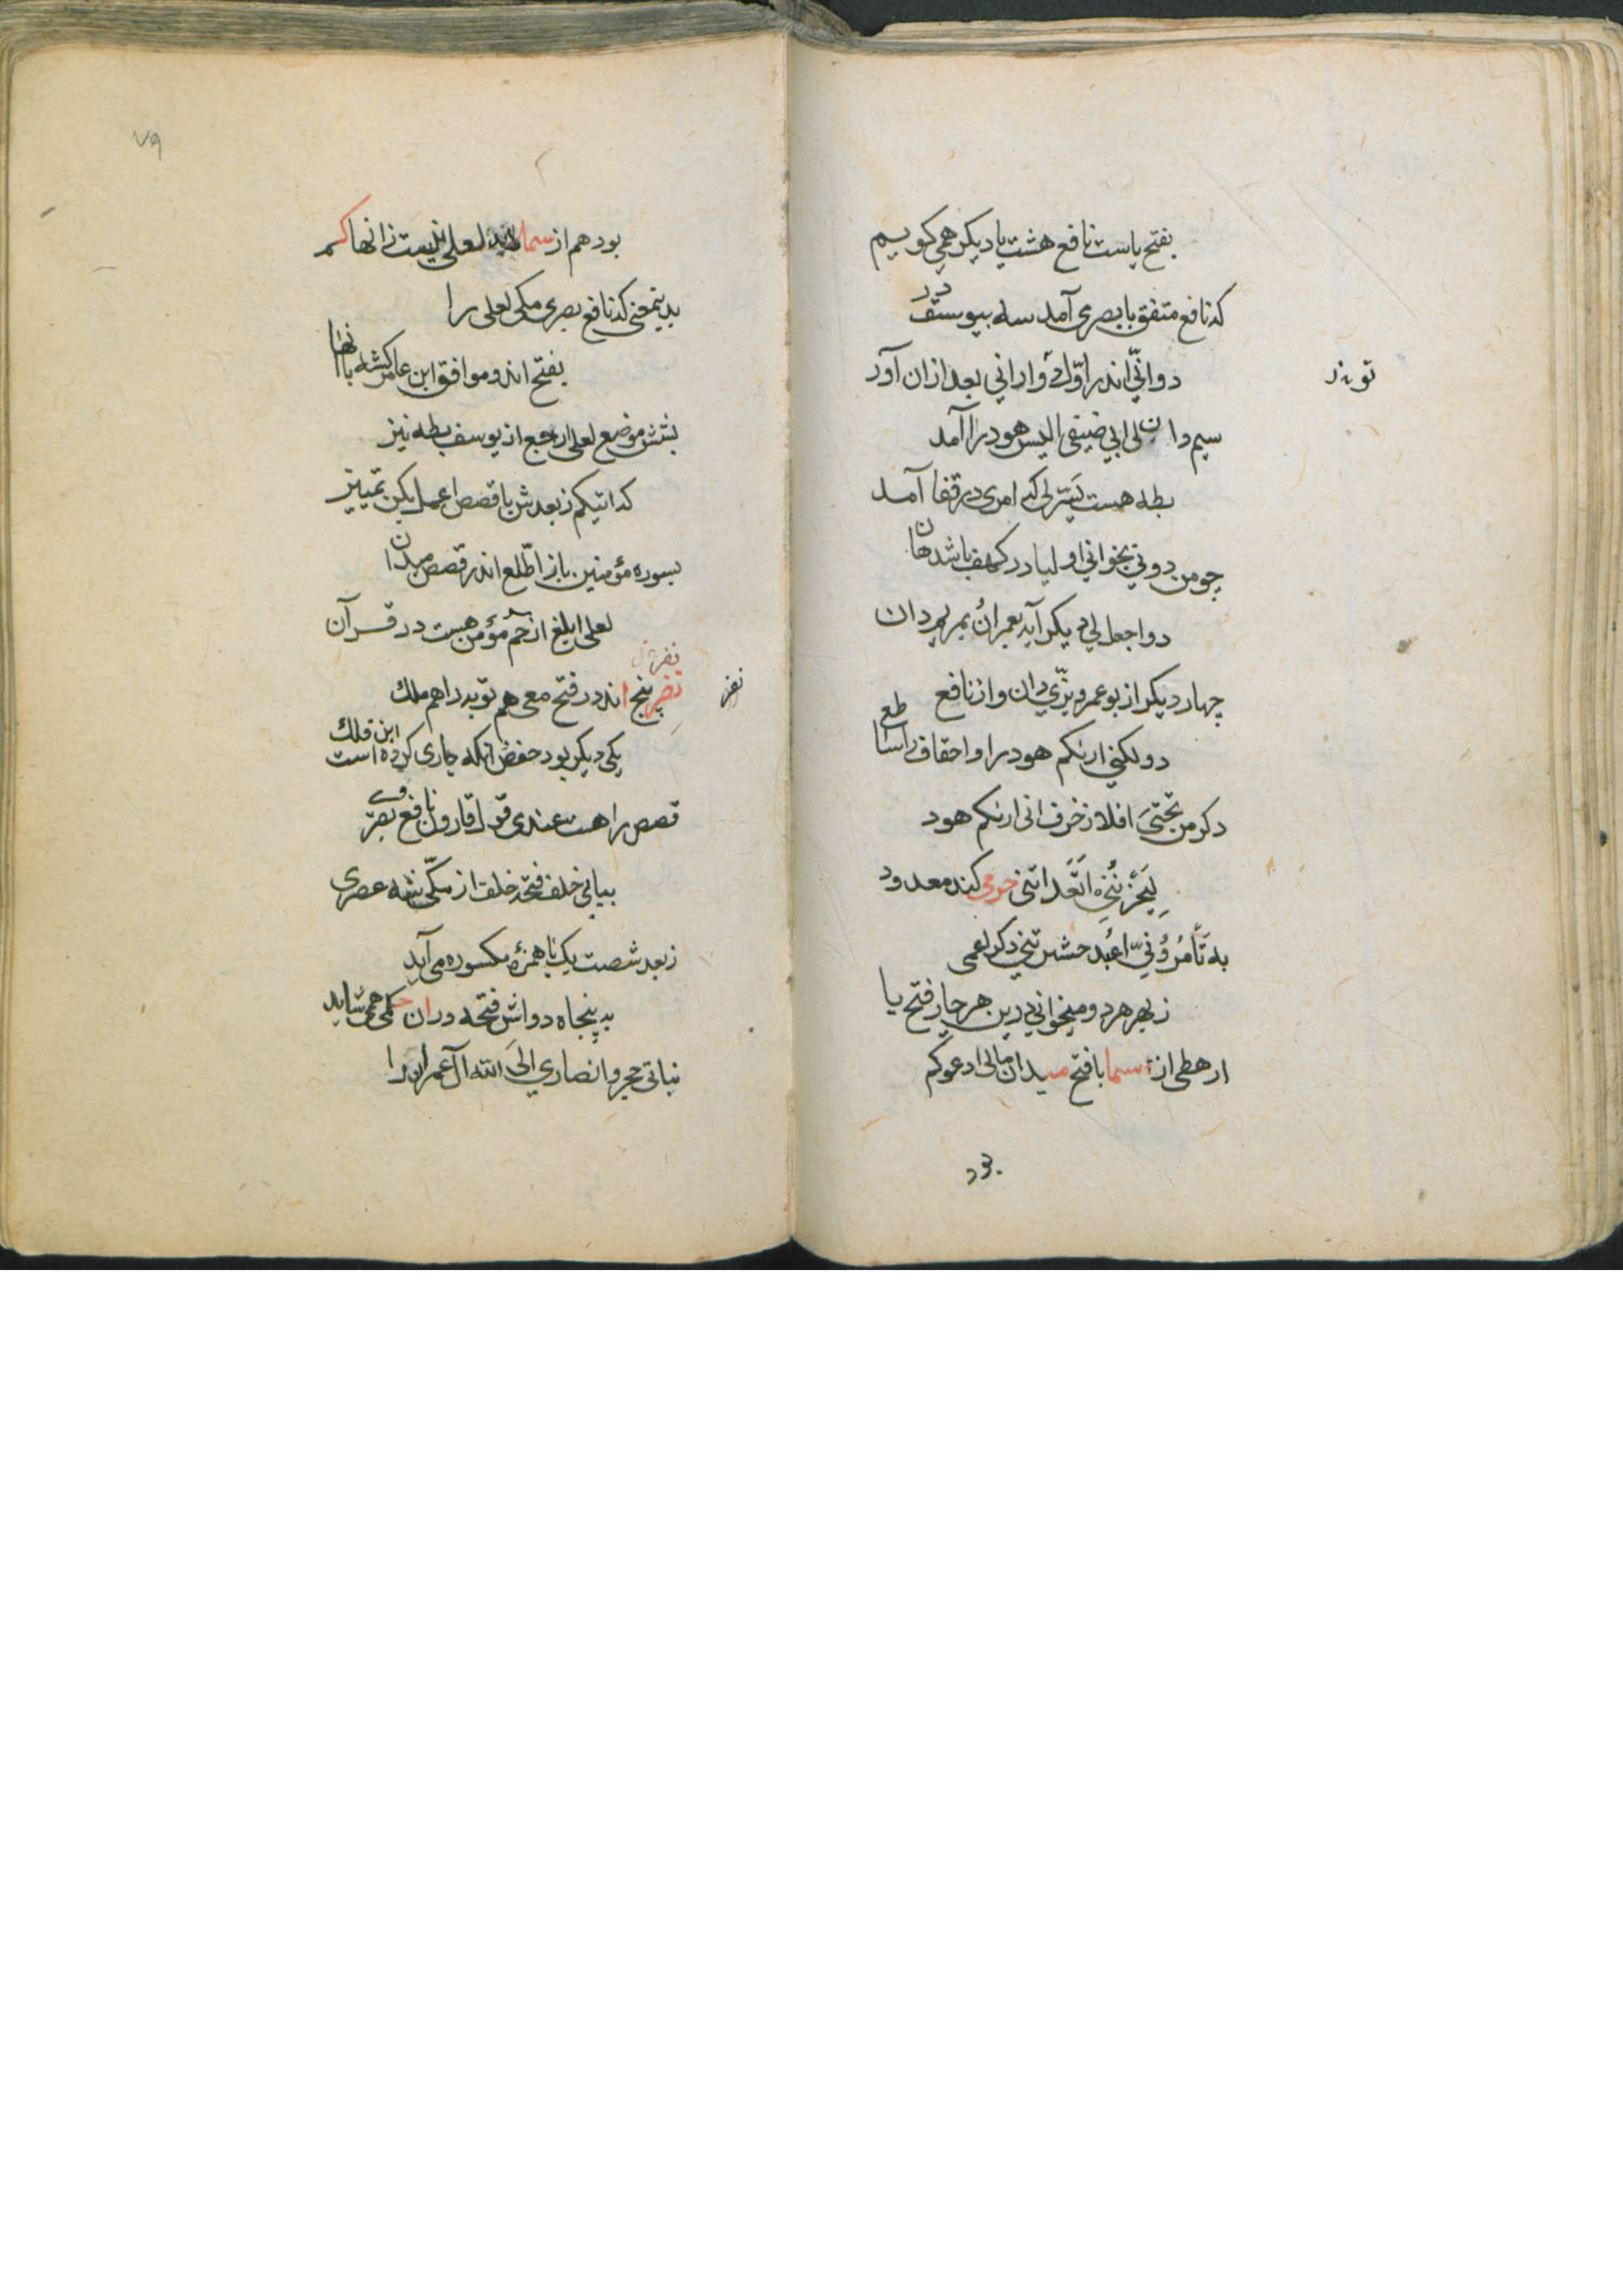 بفتح یاست نافع هشت یا دیکر همی کویم
که نافع متفق با بصری آمد سه بیوسف در
دو انّی اندر اوّل و ارانی بعد ازان آور
سیم دان لی ابی ضیفی الیس هود را آمد
بطه هست یَسّر لی که امری در قفا آمد
چو من دونی بخوانی اولیا در کهف باشد هان
دو اجعل لی دیکر آیه بعمران بمریم دان
چهار دیکر از بوعمرو بزّی دان و از نافع
دو لکنی اریکم هود را و احقاف را ساطع
دکر من تحتیَ افلا زخرف انی اریکم هود
لَیَحْزُنُنِی اتَعَدانِنی حرمی کند معدود
به تَأمُرُونّی اَعْبُد حشرتنی دکر اعمی
ز بهر هر دو میخوانی درین هر چار فتح یا
ارهطی از سما با فتح میدان مالی ادعوکم
بود
بود هم از سما لعلی نیست زانها کم
بدینمعنی که نافع بصری مکی لعلی را
بفتح اند و موافق ابن عامر کشته بانها
بشش موضع لعلی ارجع از یوسف بطه نیز
که اتیکم ز بعدش با قصص اعمل بکن تمییز
بسوره مؤمنین باز اطّلع اندر قصص میدان
لعلی ابلغ از حم مؤمن هست در قرآن
نفر پنج اند در فتح معی هم توبه را هم ملک
یکی دیکر بود حفص آنکه جاری کرده است این فلک
قصص را هست عندی قول قارون نافع بصری
بیائی خلف فتحه خلف از مکّی شده عصری
ز بعد شصت یک با همزهٔ مکسوره می آید
به پنجاه دواش فتحه دران حکمی همی شاید
بناتی حجر و انصاری الی الله آل عمران را
نفر
۷۹